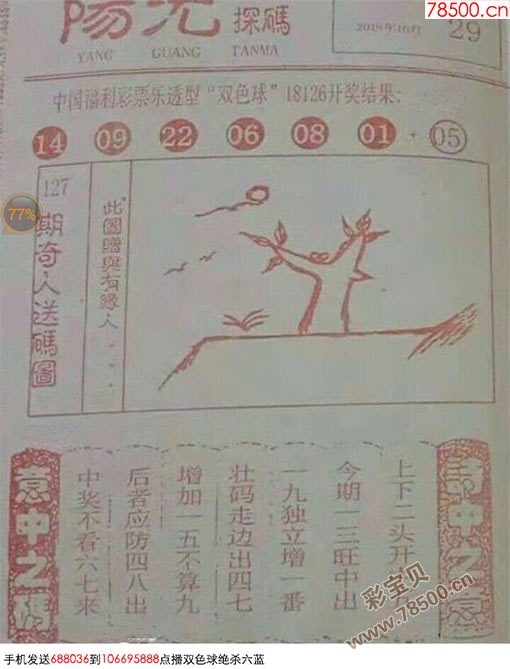 78500.cn
陽光
探碼
YANG GUANG TANMA
2018年10月
29
中国福利彩票乐透型“双色球”18126开奖结果:
14 09 22 06 08 01 + 05
127
期奇人送碼圖
此圖贈與有緣人....
77%
上下二头开
今期一三旺中出
一九独立增一番
壮码走边出四七
增加一五不算九
后者应防四八出
中奖不看六七来
意中之碼
彩宝贝
www.78500.cn
手机发送688036到106695888点播双色球绝杀六蓝